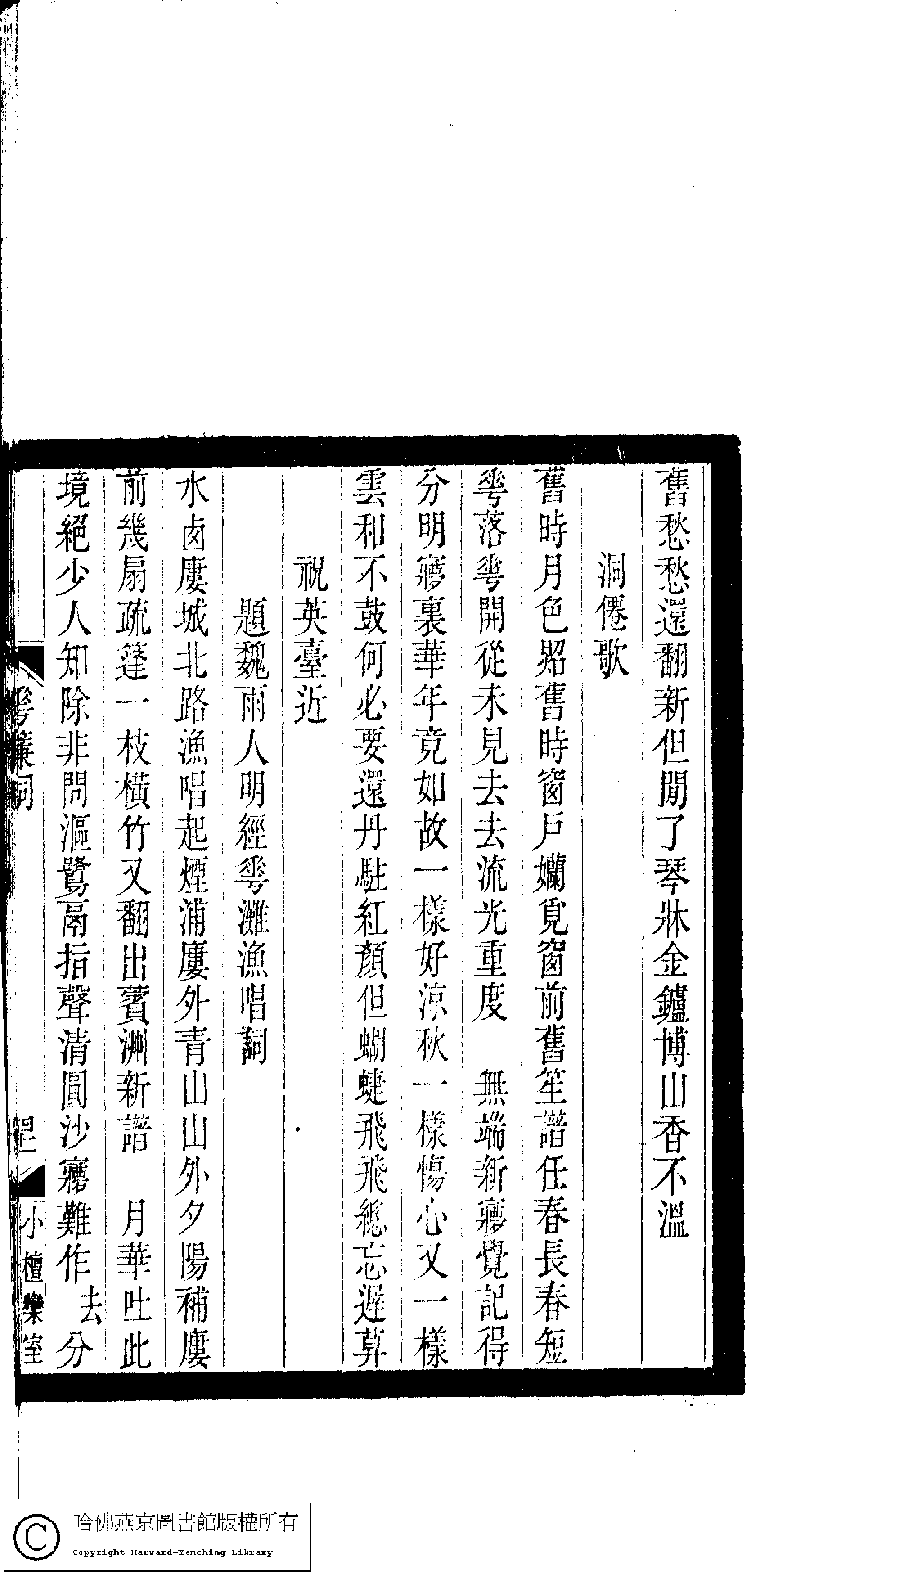 舊愁愁還翻新但閒了琴牀金鑪博山香不溫
洞僊歌
舊時月色照舊時窗戶嬾覓窗前舊笙譜任春長春短
蕚落蕚開從未見去去流光重度　無端新㝱覺記得
分明㝱裏華年竟如故一樣好涼秋一樣傷心又一樣
雲和不鼓何必要還丹駐紅顏但蝴蜨飛飛總忘遲算
祝英臺近
題魏雨人明經蕚灘漁唱詞
水鹵廔城北路漁唱起煙浦廔外青山山外夕陽補廔
前幾扇疏篷一枝橫竹又翻出賓洲新譜　月華吐此
境絕少人知除非問漚鷺鬲指聲清圓沙㝱難作去分
簾詞
小檀欒室
哈佛燕京圖書館版權所有
Copyright Harvard-Yenching Library